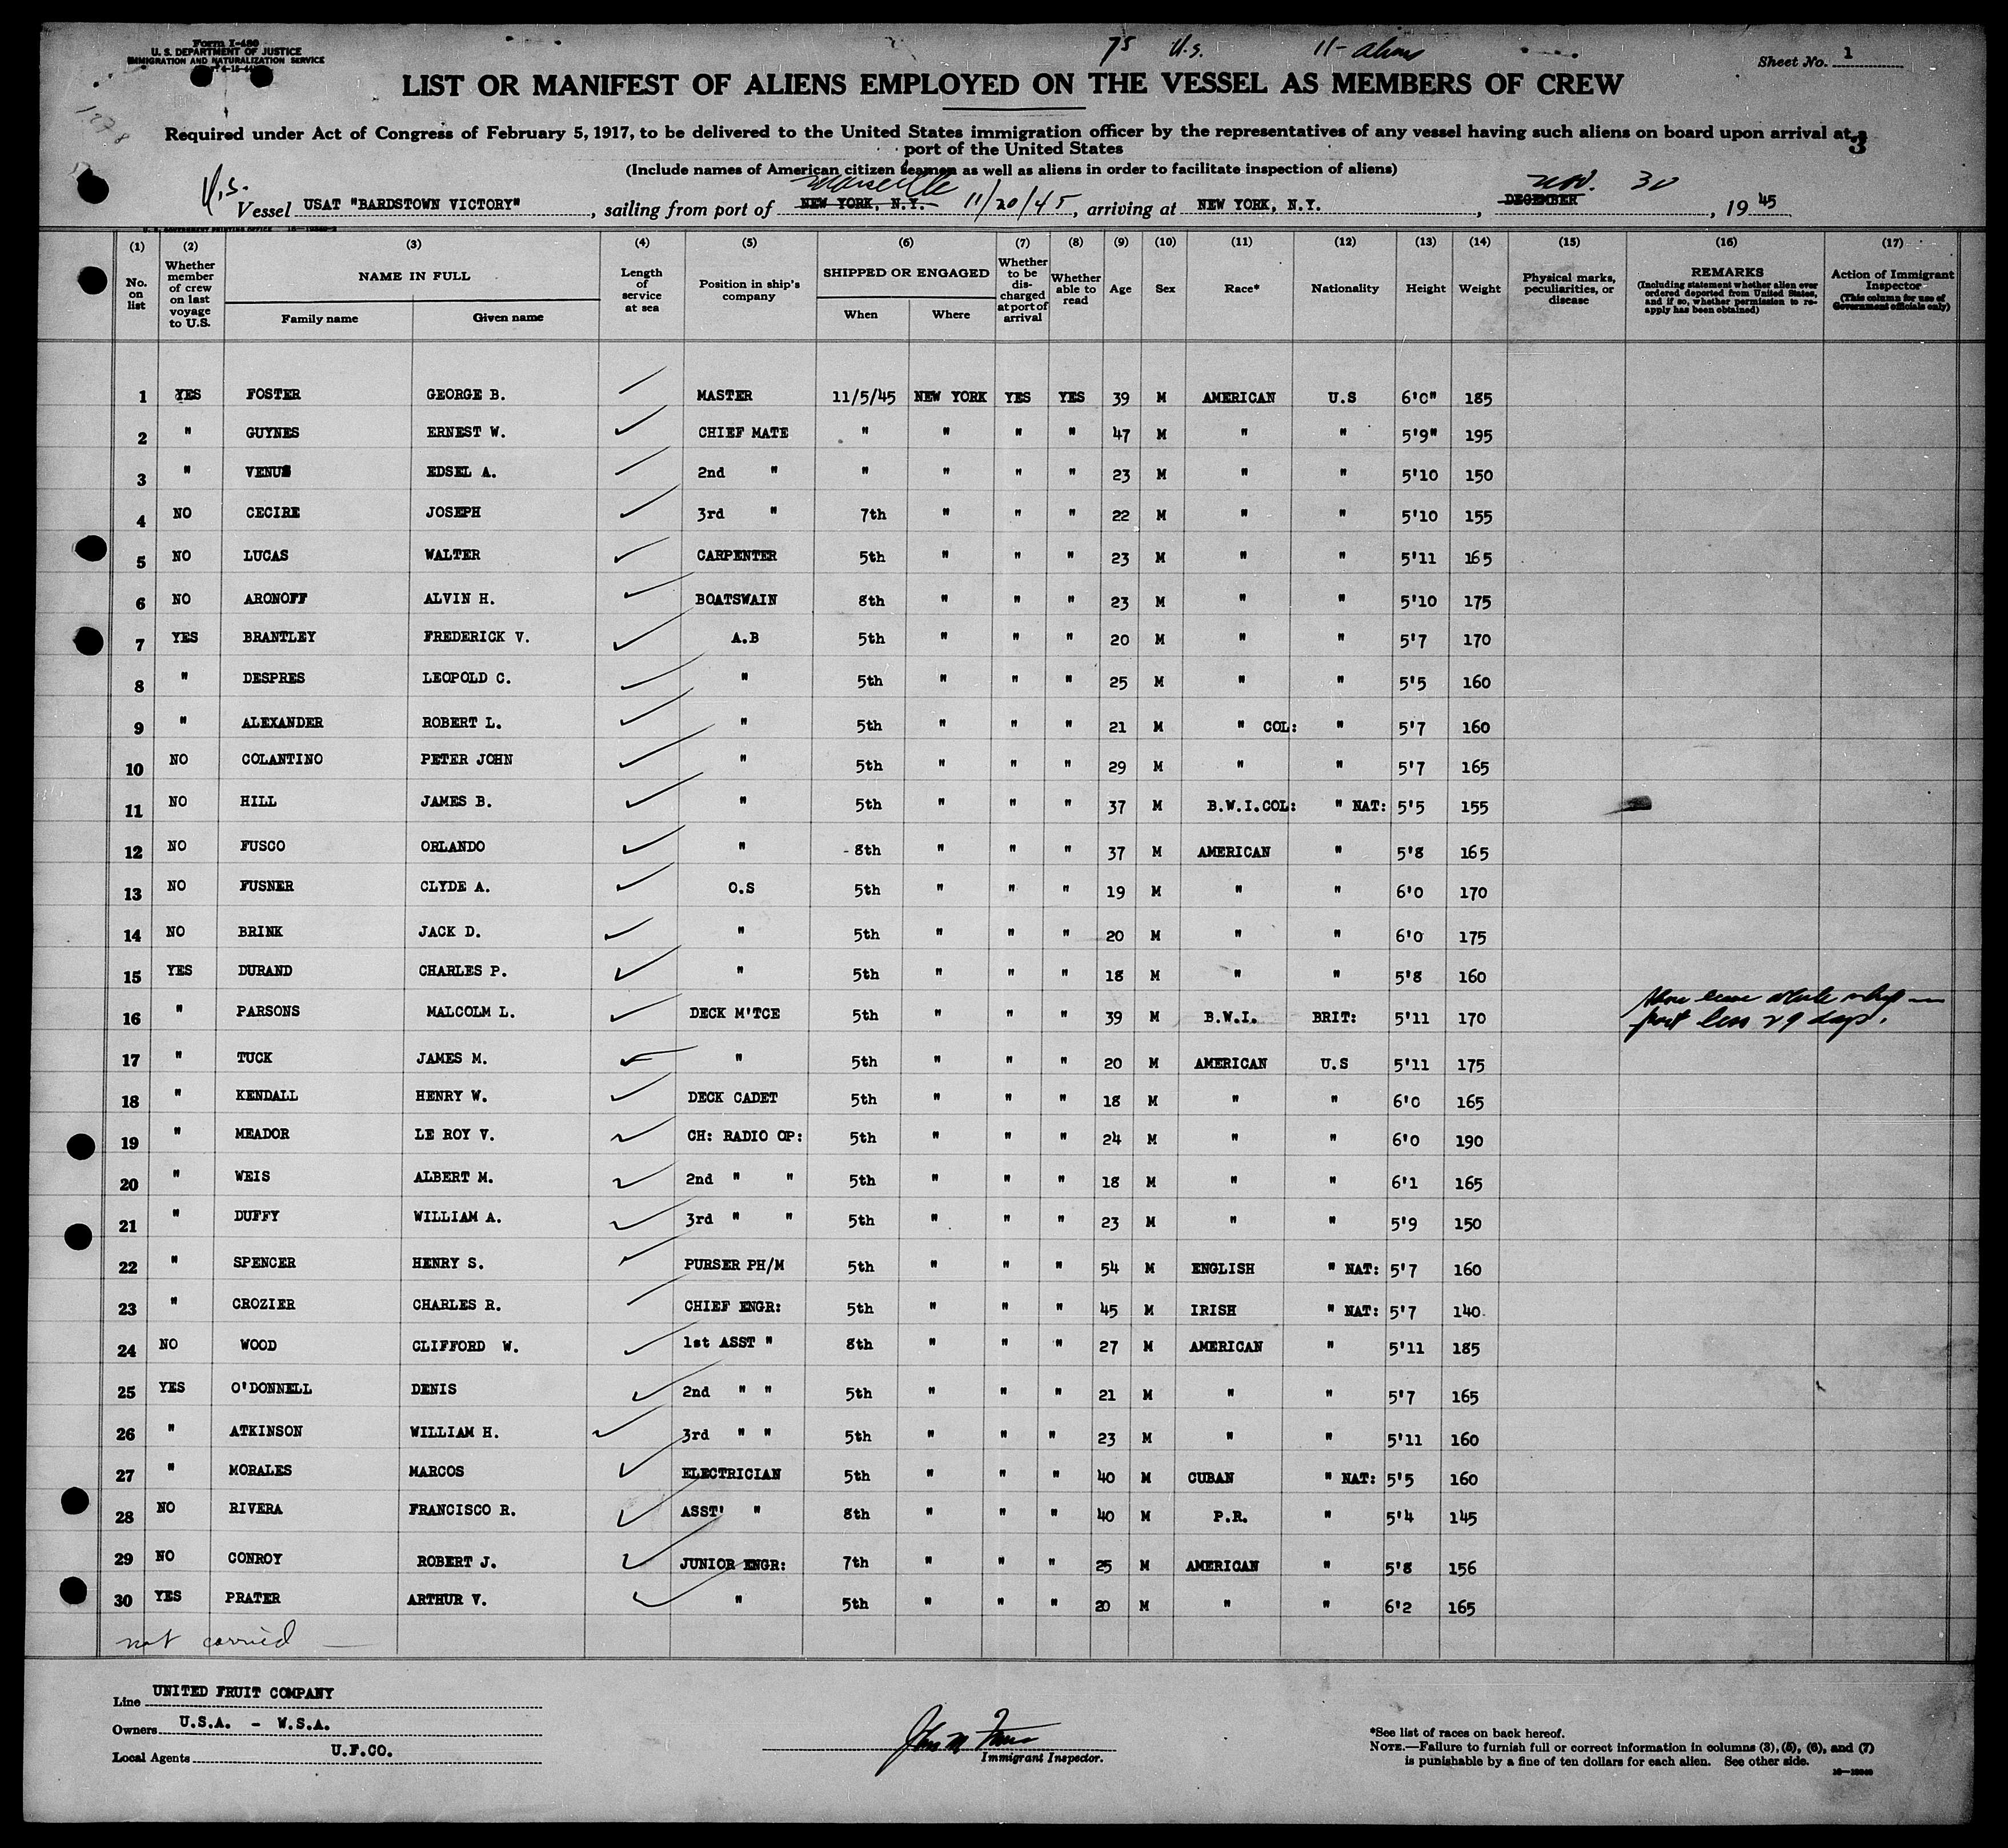 Form I-480
U. S. DEPARTMENT OF JUSTICE
IMMIGRATION AND NATURALIZATION SERVICE
75 U.S. 11- aliens
Sheet No. 1
LIST OR MANIFEST OF ALIENS EMPLOYED ON THE VESSEL AS MEMBERS OF CREW
Required under Act of Congress of February 5, 1917, to be delivered to the United States immigration officer by the representatives of any vessel having such aliens on board upon arrival at a
port of the United States
3
(Include names of American citizen seamen as well as aliens in order to facilitate inspection of aliens)
U.S. Marseille Nov. 30
Vessel USAT "BARDSTOWN VICTORY", sailing from port of NEW YORK, N.Y. 11/20/45, arriving at NEW YORK, N.Y., DECEMBER, 1945
(1) (2) (3) (4) (5) (6) (7) (8) (9) (10) (11) (12) (13) (14) (15) (16) (17)
No. on list
Whether member of crew on last voyage to U.S.
NAME IN FULL
Family name Given name
Length of service at sea
Position in ship's company
SHIPPED OR ENGAGED
When Where
Whether to be discharged at port of arrival
Whether able to read
Age Sex Race* Nationality Height Weight
Physical marks, peculiarities, or disease
REMARKS
(Including statement whether alien ever ordered deported from United States, and if so, whether permission to reapply has been obtained)
Action of Immigrant Inspector
(This column for use of Government officials only)
1 YES FOSTER GEORGE B. MASTER 11/5/45 NEW YORK YES YES 39 M AMERICAN U.S 6'0" 185
2 " GUYNES ERNEST W. CHIEF MATE " " " " 47 M " " 5'9" 195
3 " VENUS EDSEL A. 2nd " " " " " 23 M " " 5'10 150
4 NO CECIRE JOSEPH 3rd " 7th " " " 22 M " " 5'10 155
5 NO LUCAS WALTER CARPENTER 5th " " " 23 M " " 5'11 165
6 NO ARONOFF ALVIN H. BOATSWAIN 8th " " " 23 M " " 5'10 175
7 YES BRANTLEY FREDERICK V. A.B 5th " " " 20 M " " 5'7 170
8 " DESPRES LEOPOLD C. " 5th " " " 25 M " " 5'5 160
9 " ALEXANDER ROBERT L. " 5th " " " 21 M " COL: " 5'7 160
10 NO COLANTINO PETER JOHN " 5th " " " 29 M " " 5'7 165
11 NO HILL JAMES B. " 5th " " " 37 M B.W.I.COL: " NAT: 5'5 155
12 NO FUSCO ORLANDO " 8th " " " 37 M AMERICAN " 5'8 165
13 NO FUSNER CLYDE A. O.S 5th " " " 19 M " " 6'0 170
14 NO BRINK JACK D. " 5th " " " 20 M " " 6'0 175
15 YES DURAND CHARLES P. " 5th " " " 18 M " " 5'8 160
16 " PARSONS MALCOLM L. DECK M'TCE 5th " " " 39 M B.W.I. BRIT: 5'11 170 Shore leave while ship in
port less 29 days.
17 " TUCK JAMES M. " 5th " " " 20 M AMERICAN U.S 5'11 175
18 " KENDALL HENRY W. DECK CADET 5th " " " 18 M " " 6'0 165
19 " MEADOR LE ROY V. CH: RADIO OP: 5th " " " 24 M " " 6'0 190
20 " WEIS ALBERT M. 2nd " " 5th " " " 18 M " " 6'1 165
21 " DUFFY WILLIAM A. 3rd " " 5th " " " 23 M " " 5'9 150
22 " SPENCER HENRY S. PURSER PH/M 5th " " " 54 M ENGLISH " NAT: 5'7 160
23 " CROZIER CHARLES R. CHIEF ENGR: 5th " " " 45 M IRISH " NAT: 5'7 140
24 NO WOOD CLIFFORD W. 1st ASST " 8th " " " 27 M AMERICAN " 5'11 185
25 YES O'DONNELL DENIS 2nd " " 5th " " " 21 M " " 5'7 165
26 " ATKINSON WILLIAM H. 3rd " " 5th " " " 23 M " " 5'11 160
27 " MORALES MARCOS ELECTRICIAN 5th " " " 40 M CUBAN " NAT: 5'5 160
28 NO RIVERA FRANCISCO R. ASST' " 8th " " " 40 M P.R. " 5'4 145
29 NO CONROY ROBERT J. JUNIOR ENGR: 7th " " " 25 M AMERICAN " 5'8 156
30 YES PRATER ARTHUR V. " 5th " " " 20 M " " 6'2 165
not carried
Line UNITED FRUIT COMPANY
Owners U.S.A. - W.S.A.
Local Agents U.F.CO.
Immigrant Inspector.
*See list of races on back hereof.
NOTE.—Failure to furnish full or correct information in columns (3), (5), (6), and (7)
is punishable by a fine of ten dollars for each alien. See other side.